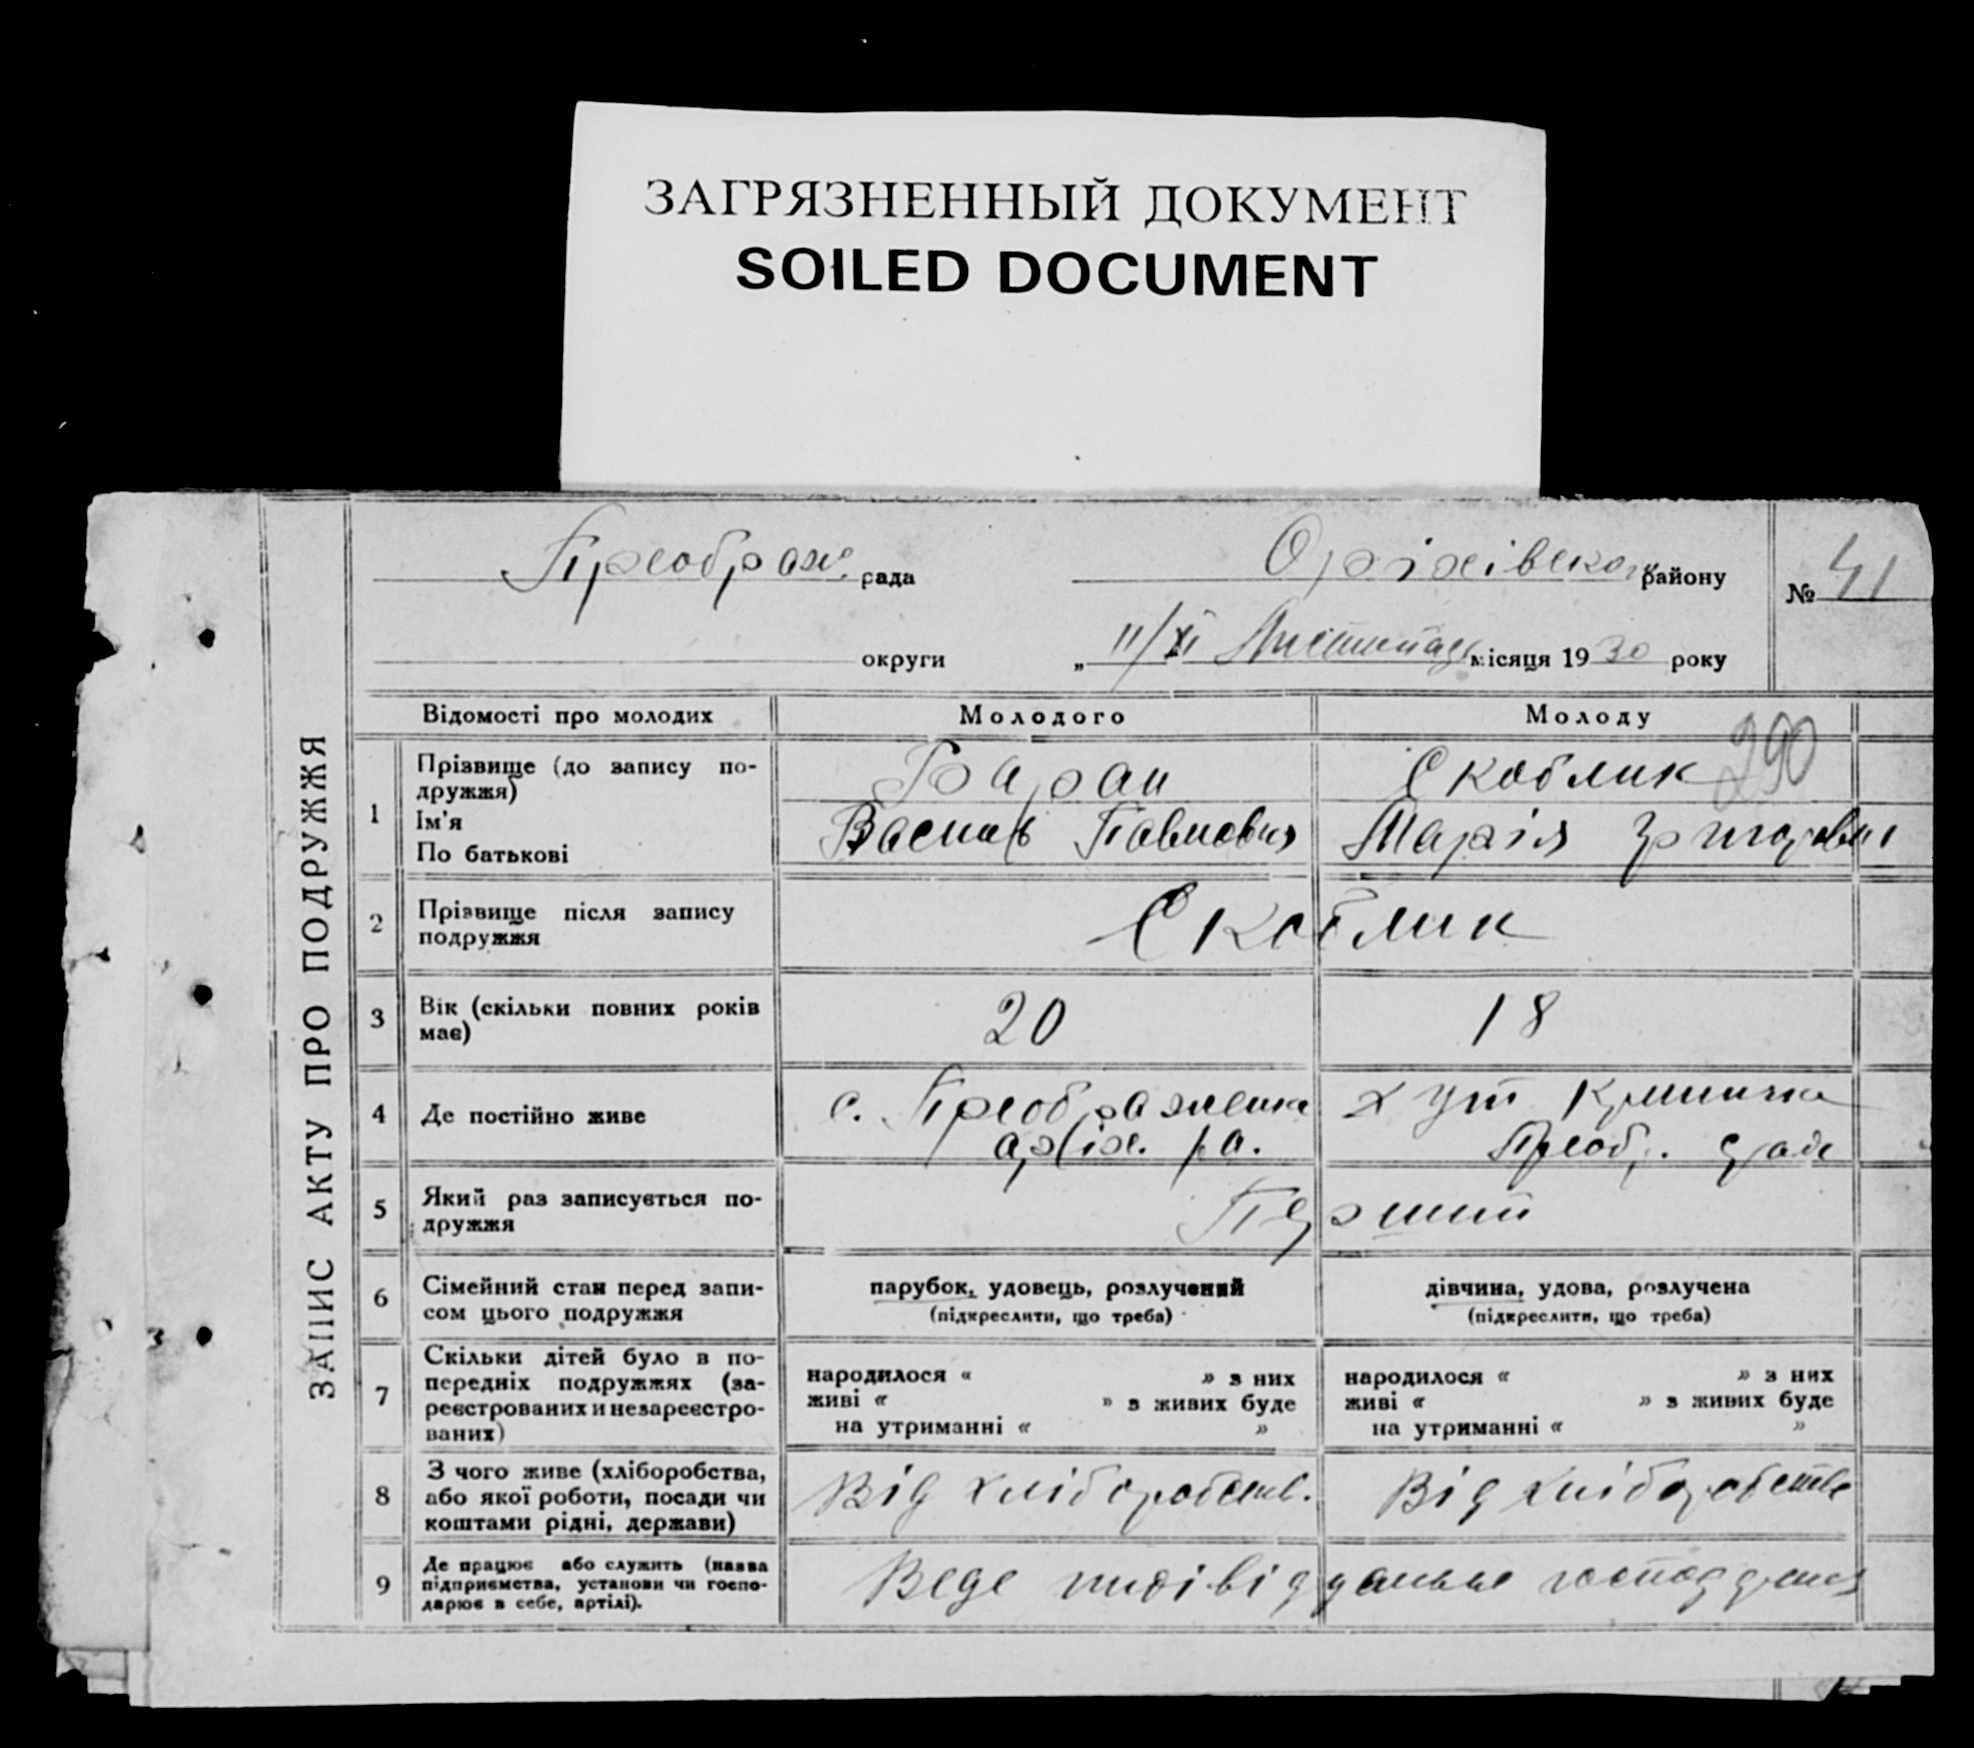 ЗАГРЯЗНЕННЫЙ ДОКУМЕНТ
SOILED DOCUMENT
Преображ. рада Оріхівськог району № 41
округи „ 11/XI Листопада місяця 1930 року
ЗАПИС АКТУ ПРО ПОДРУЖЖЯ
Відомості про молодих Молодого Молоду
290
1 Прізвище (до запису по-
дружжя)
Ім'я
По батькові
Баран
Скоблик
Василь Павлович
Марія Григоровн
2 Прізвище після запису
подружжя
Скоблик
3 Вік (скільки повних років
має)
20
18
4 Де постійно живе
с. Преображенка
оріх. р-на.
хут
Преобр. с/рада
5 Який раз записується по-
дружжя
Перший
6 Сімейний стан перед запи-
сом цього подружжя
парубок, удовець, розлучений
(підкреслити, що треба)
дівчина, удова, розлучена
(підкреслити, що треба)
7 Скільки дітей було в по-
передніх подружжях (за-
реєстрованих и незареєстро-
ваних)
народилося « » з них
живі « » з живих буде
на утриманні « »
народилося « » з них
живі « » з живих буде
на утриманні « »
8 З чого живе (хліборобства,
або якої роботи, посади чи
коштами рідні, держави)
Від хліборобств.
Від хліборобства
9 Де працює або служить (назва
підприємства, установи чи госпо-
дарює в себе, артілі).
Веде индівідуальне